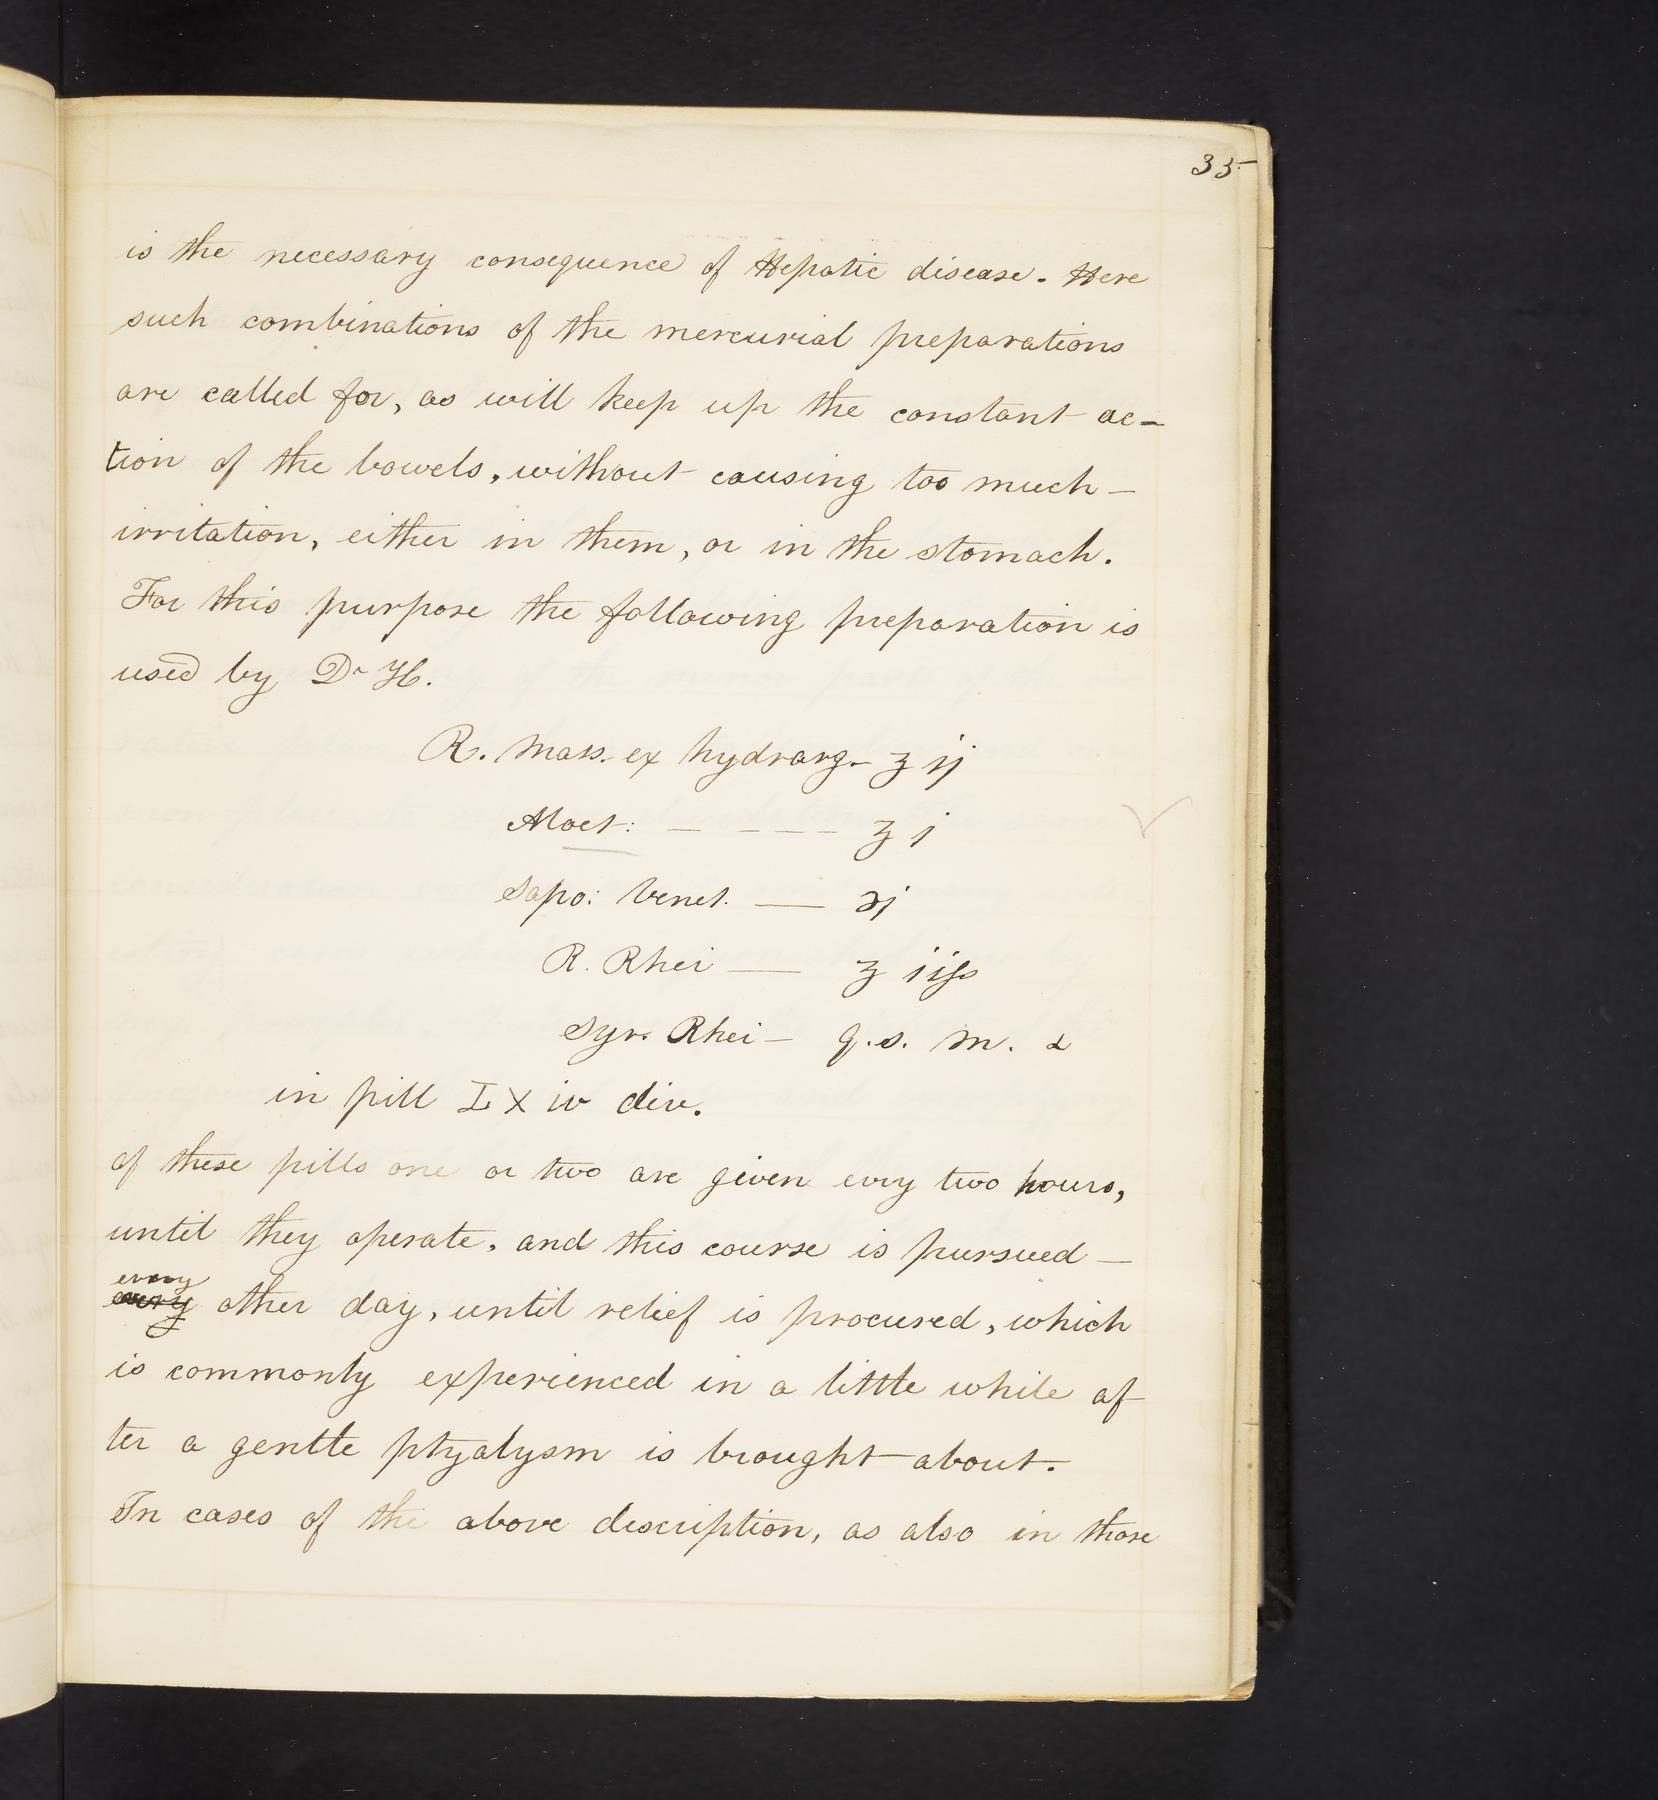 35
is the necessary consequence of Hepatic disease. Here
such combinations of the mercurial preparations
are called for, as will keep up the constant ac-
tion of the bowels, without causing too much —
irritation, either in them, or in the stomach.
For this purpose the following preparation is
used by Dr H.
R. Mass. ex hydrarg — ʒ ij
Aloet: — — — — ʒ j
Sapo: Venet. — ℈j
R. Rhei — ʒ iiſs
Syr. Rhei — q.s. m. &
in pill LX iv div.
of these pills one or two are given evry two hours,
until they operate, and this course is pursued —
every
every other day, until relief is procured, which
is commonly experienced in a little while af
ter a gentle ptyalysm is brought about.
In cases of the above description, as also in those